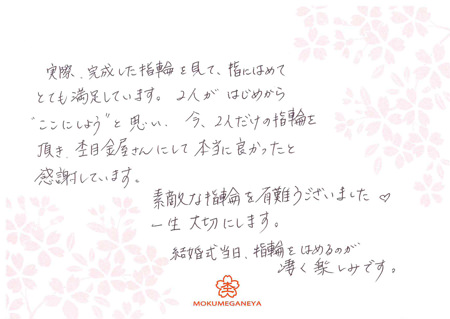 実際、完成した指輪を見て、指にはめて
とても満足しています。2人がはじめから
"ここにしよう"と思い、今、2人だけの指輪を
頂き、杢目金屋さんにして本当に良かったと
感謝しています。
素敵な指輪を有難うございました♡
一生大切にします。
結婚式当日、指輪をはめるのが
凄く楽しみです。
杢
MOKUMEGANEYA